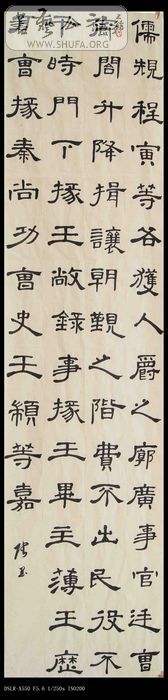 書藝公社
WWW.SHUFA.ORG
儒規程寅等各獲人爵之廓廣事官廷曹
廊閤升降揖讓朝覲之階費不出民役不
干時門下掾王敞錄事掾王畢主薄王歷
曹掾秦尚功曹史王顓等嘉
DSLR-A550 F5.6 1/250s ISO200